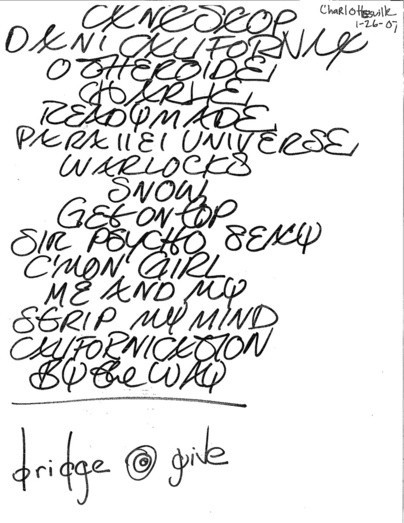 Charlottesville
1-26-07
CANT STOP
DANI CALIFORNIA
OTHERSIDE
CHARLIE
READYMADE
PARALLEL UNIVERSE
WARLOCKS
SNOW
GET ON TOP
SIR PSYCHO SEXY
C'MON GIRL
ME AND MY
STRIP MY MIND
CALIFORNICATION
BY the WAY
bridge give